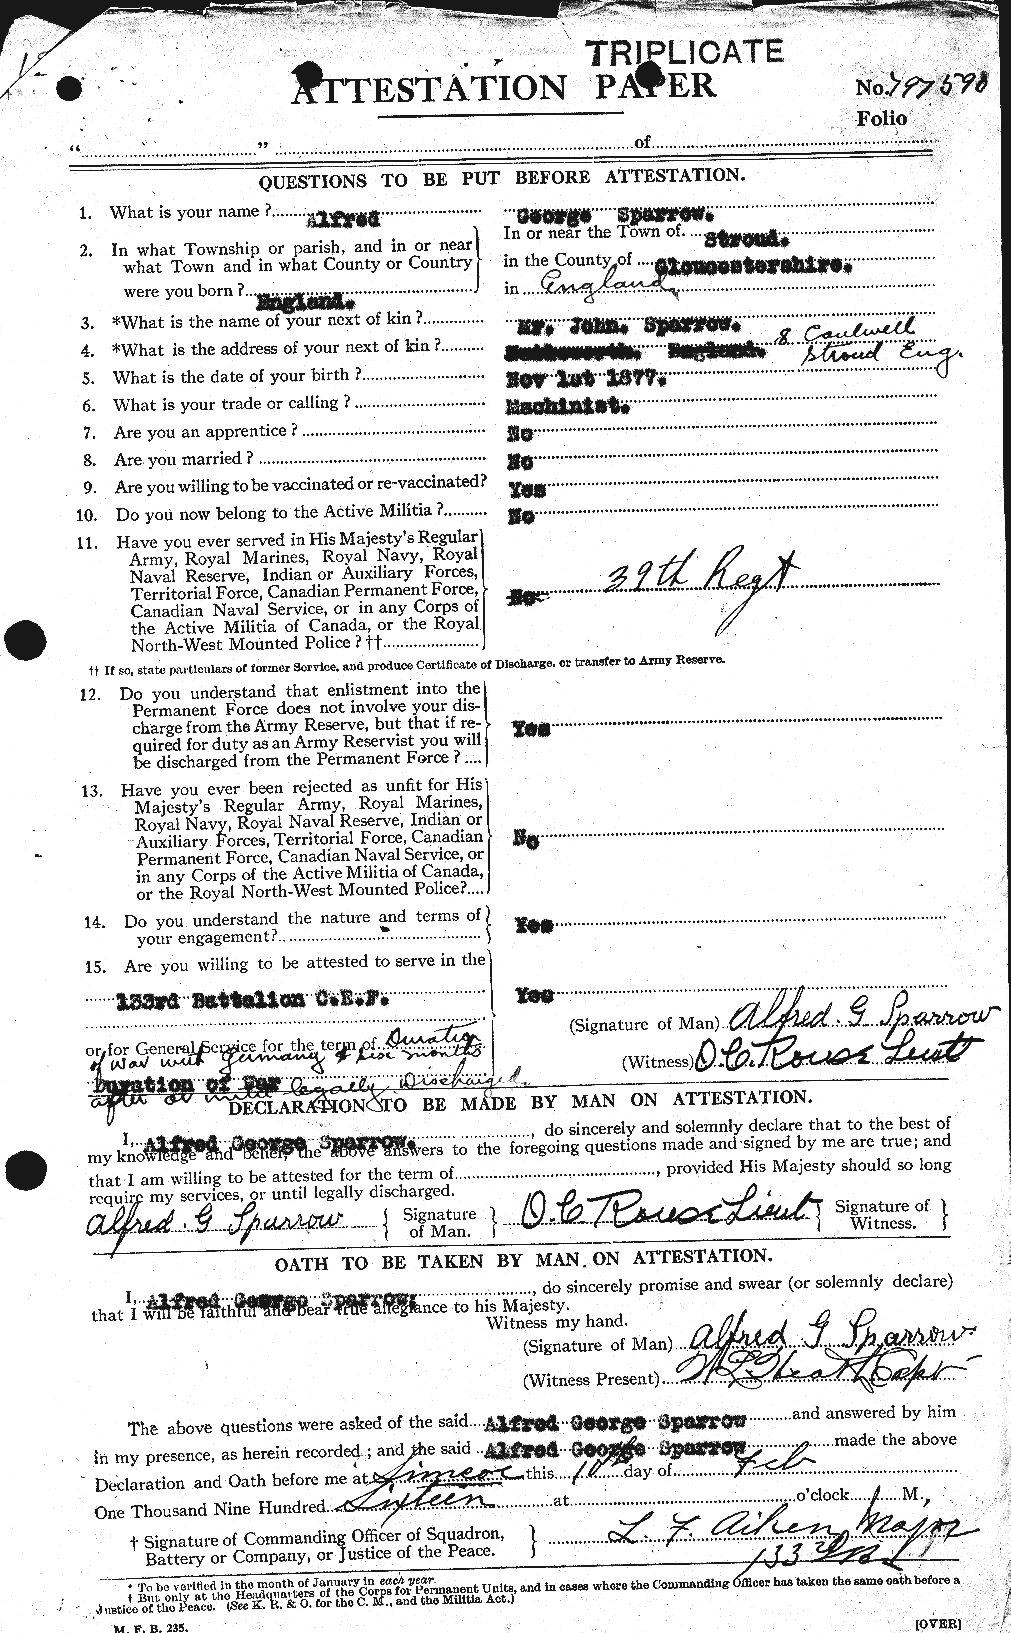 TRIPLICATE
ATTESTATION PAPER
No. 797598
Folio
“ ” of
QUESTIONS TO BE PUT BEFORE ATTESTATION.
1. What is your name ? Alfred George Sparrow.
2. In what Township or parish, and in or near what Town and in what County or Country were you born ? England.
In or near the Town of. Stroud.
in the County of Gloucestershire.
in England
3. *What is the name of your next of kin ? Mr. John. Sparrow.
4. *What is the address of your next of kin ? England. 8 Caulwell
Stroud Eng.
5. What is the date of your birth ? Nov 1st 1877.
6. What is your trade or calling ? Machinist.
7. Are you an apprentice ? No
8. Are you married ? No
9. Are you willing to be vaccinated or re-vaccinated? Yes
10. Do you now belong to the Active Militia ? No
11. Have you ever served in His Majesty's Regular
Army, Royal Marines, Royal Navy, Royal
Naval Reserve, Indian or Auxiliary Forces,
Territorial Force, Canadian Permanent Force,
Canadian Naval Service, or in any Corps of
the Active Militia of Canada, or the Royal
North-West Mounted Police ? ††
No 39th Regt
†† If so, state particulars of former Service, and produce Certificate of Discharge, or transfer to Army Reserve.
12. Do you understand that enlistment into the
Permanent Force does not involve your dis-
charge from the Army Reserve, but that if re-
quired for duty as an Army Reservist you will
be discharged from the Permanent Force ?
Yes
13. Have you ever been rejected as unfit for His
Majesty's Regular Army, Royal Marines,
Royal Navy, Royal Naval Reserve, Indian or
Auxiliary Forces, Territorial Force, Canadian
Permanent Force, Canadian Naval Service, or
in any Corps of the Active Militia of Canada,
or the Royal North-West Mounted Police?
No
14. Do you understand the nature and terms of
your engagement?
Yes
15. Are you willing to be attested to serve in the
133rd Battalion C.E.F.
Yes
or for General Service for the term of Duration
of war with Germany & six months
Duration of War
after or until legally Discharged.
(Signature of Man) Alfred. G Sparrow
(Witness) O. C. Rouse Lieut
DECLARATION TO BE MADE BY MAN ON ATTESTATION.
I, Alfred George Sparrow. , do sincerely and solemnly declare that to the best of
my knowledge and belief, the above answers to the foregoing questions made and signed by me are true; and
that I am willing to be attested for the term of , provided His Majesty should so long
require my services, or until legally discharged.
Alfred. G Sparrow { Signature of Man. } O. C Rouse Lieut { Signature of Witness. }
OATH TO BE TAKEN BY MAN ON ATTESTATION.
I, Alfred George Sparrow. , do sincerely promise and swear (or solemnly declare)
that I will be faithful and bear true allegiance to his Majesty.
Witness my hand.
(Signature of Man) Alfred G Sparrow
(Witness Present) Capt
The above questions were asked of the said Alfred George Sparrow and answered by him
in my presence, as herein recorded ; and the said Alfred George Sparrow made the above
Declaration and Oath before me at Simcoe this 10th day of Feb
One Thousand Nine Hundred Sixteen at o'clock M.,
† Signature of Commanding Officer of Squadron,
Battery or Company, or Justice of the Peace.
L. F. Aiken Major
133rd
* To be verified in the month of January in each year.
† But only at the Headquarters of the Corps for Permanent Units, and in cases where the Commanding Officer has taken the same oath before a
Justice of the Peace. (See K. R. & O. for the C. M., and the Militia Act.)
M. F. B. 235.
[OVER]